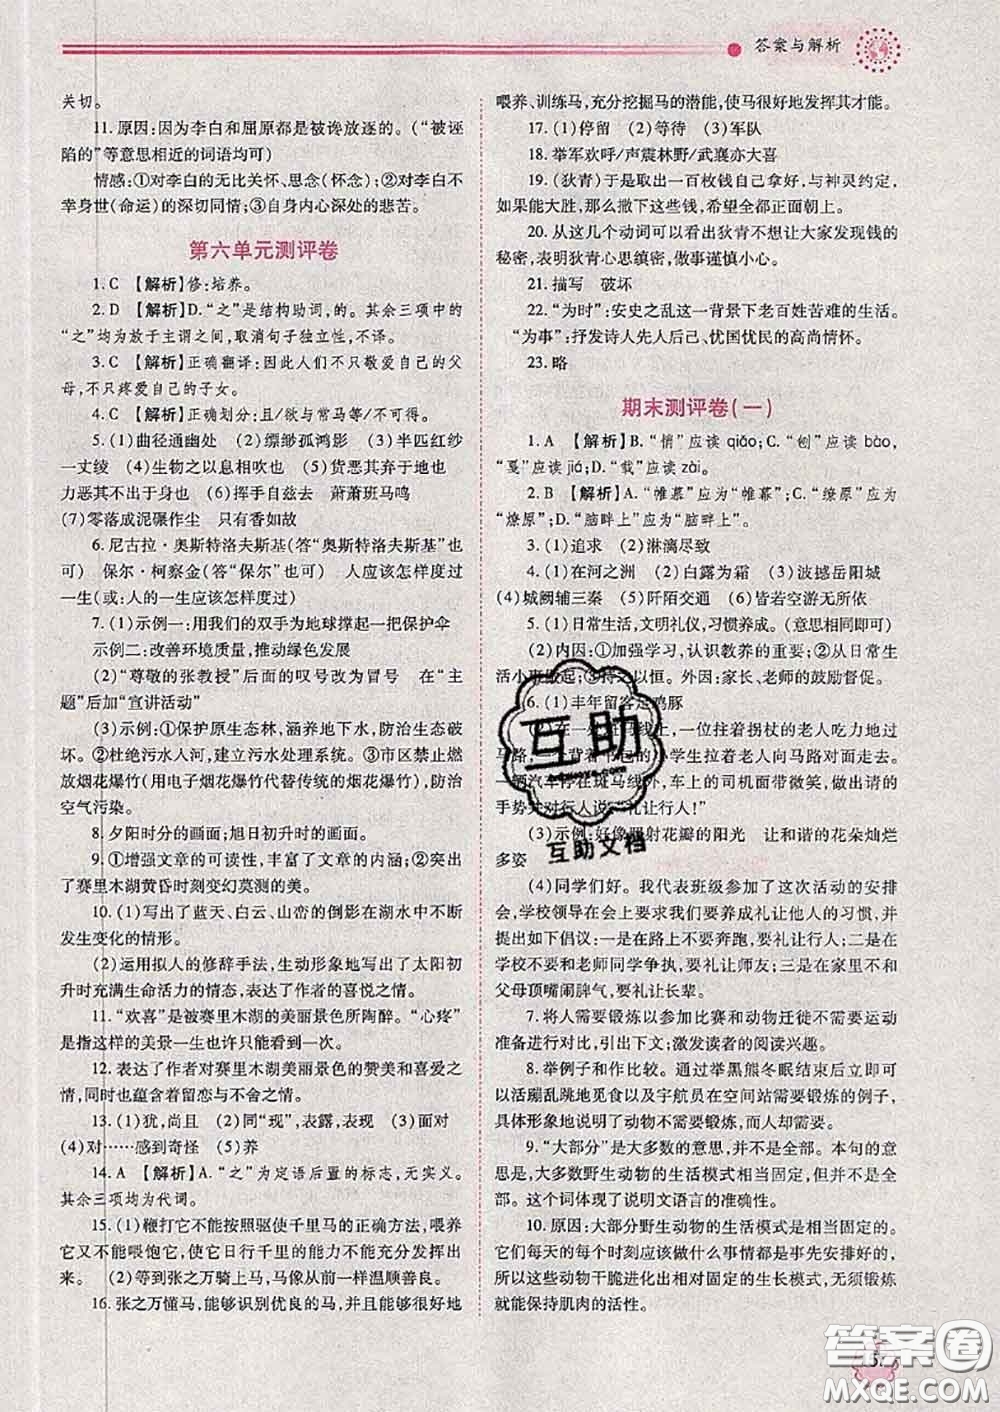 答案与解析
关切。
11. 原因:因为李白和屈原都是被谗放逐的。(“被诬
陷的”等意思相近的词语均可)
情感:①对李白的无比关怀、思念(怀念);②对李白不
幸身世(命运)的深切同情;③自身内心深处的悲苦。
第六单元测评卷
1. C 【解析】修:培养。
2. D 【解析】D.“之”是结构助词,的。其余三项中的
“之”均为放于主谓之间,取消句子独立性,不译。
3. C 【解析】正确翻译:因此人们不只敬爱自己的父
母,不只疼爱自己的子女。
4. C 【解析】正确划分:且/欲与常马等/不可得。
5. (1)曲径通幽处 (2)缥缈孤鸿影 (3)半匹红纱
一丈绫 (4)生物之以息相吹也 (5)货恶其弃于地也
力恶其不出于身也 (6)挥手自兹去 萧萧班马鸣
(7)零落成泥碾作尘 只有香如故
6. 尼古拉·奥斯特洛夫斯基(答“奥斯特洛夫斯基”也
可) 保尔·柯察金(答“保尔”也可) 人应该怎样度过
一生(或:人的一生应该怎样度过)
7. (1)示例一:用我们的双手为地球撑起一把保护伞
示例二:改善环境质量,推动绿色发展
(2)“尊敬的张教授”后面的叹号改为冒号 在“主
题”后加“宣讲活动”
(3)示例:①保护原生态林,涵养地下水,防治生态破
坏。②杜绝污水入河,建立污水处理系统。③市区禁止燃
放烟花爆竹(用电子烟花爆竹代替传统的烟花爆竹),防治
空气污染。
8. 夕阳时分的画面;旭日初升时的画面。
9. ①增强文章的可读性,丰富了文章的内容;②突出
了赛里木湖黄昏时刻变幻莫测的美。
10. (1)写出了蓝天、白云、山峦的倒影在湖水中不断
发生变化的情形。
(2)运用拟人的修辞手法,生动形象地描写了太阳初
升时充满生命活力的情态,表达了作者的喜悦之情。
11. “欢喜”是被赛里木湖的美丽景色所陶醉。“心疼”
是指这样的美景一生也许只能看到一次。
12. 表达了作者对赛里木湖美丽景色的赞美和喜爱之
情,同时也蕴含着留恋与不舍之情。
13. (1)犹,尚且 (2)同“现”,表露,表现 (3)面对
(4)对……感到奇怪 (5)养
14. A 【解析】A.“之”为定语后置的标志,无实义。
其余三项均为代词。
15. (1)鞭打它不能按照驱使千里马的正确方法,喂养
它又不能喂饱它,使它日行千里的能力不能充分发挥出
来。 (2)等到张之万骑上马,马像从前一样温顺善良。
16. 张之万懂马,能够识别优良的马,并且能够很好地
喂养、训练马,充分挖掘马的潜能,使马很好地发挥其才能。
17. (1)停留 (2)等待 (3)军队
18. 举军欢呼/声震林野/武襄亦大喜
19. (狄青)于是取出一百枚钱自己拿好,与神灵约定,
如果能大胜,那么撒下这些钱,希望全都正面朝上。
20. 从这几个动词可以看出狄青不想让大家发现钱的
秘密,表明狄青心思缜密,做事谨慎小心。
21. 描写 破坏
22. “为时”:安史之乱这一背景下老百姓苦难的生活。
“为事”:抒发诗人先人后己、忧国忧民的高尚情怀。
23. 略
期末测评卷(一)
1. A 【解析】B.“悄”应读 qiǎo;C.“刨”应读 bào,
“戛”应读 jiá;D.“载”应读 zài。
2. B 【解析】A.“帷慕”应为“帷幕”;C.“缭原”应为
“燎原”;D.“脑畔上”应为“脑畔上”。
3. (1)追求 (2)淋漓尽致
4. (1)在河之洲 (2)白露为霜 (3)波撼岳阳城
(4)城阙辅三秦 (5)阡陌交通 (6)皆若空游无所依
5. (1)日常生活,文明礼仪,习惯养成。(意思相同即可)
(2)内因:①加强学习,认识教养的重要;②从日常生
活小事做起;③持之以恒。外因:家长、老师的鼓励督促。
6. (1)丰年留客足鸡豚
马路,一个背着书包的小学生拉着老人向马路对面走去。
一辆汽车停在斑马线外,车上的司机面带微笑,做出请的
手势并对行人说“礼让行人!”
(3)示例:好像照射花瓣的阳光 让和谐的花朵灿烂
多姿
(4)同学们好。我代表班级参加了这次活动的安排
会,学校领导在会上要求我们要养成礼让他人的习惯,并
提出如下倡议:一是在路上不要奔跑,要礼让行人;二是在
学校不要和老师同学争执,要礼让师友;三是在家里不和
父母顶嘴闹脾气,要礼让长辈。
7. 将人需要锻炼以参加比赛和动物迁徙不需要运动
准备进行对比,引出下文;激发读者的阅读兴趣。
8. 举例子和作比较。通过举黑熊冬眠结束后立即可
以活蹦乱跳地觅食以及宇航员在空间站需要锻炼的例子,
具体形象地说明了动物不需要锻炼,而人却需要。
9. “大部分”是大多数的意思,并不是全部。本句的意
思是,大多数野生动物的生活模式相当固定,但并不是全
部。这个词体现了说明文语言的准确性。
10. 原因:大部分野生动物的生活模式是相当固定的。
它们每天的每个时刻应该做什么事情都是事先安排好的,
所以这些动物干脆进化出相对固定的生长模式,无须锻炼
就能保持肌肉的活性。
互助
互助文档
答案圈
MXQE.COM